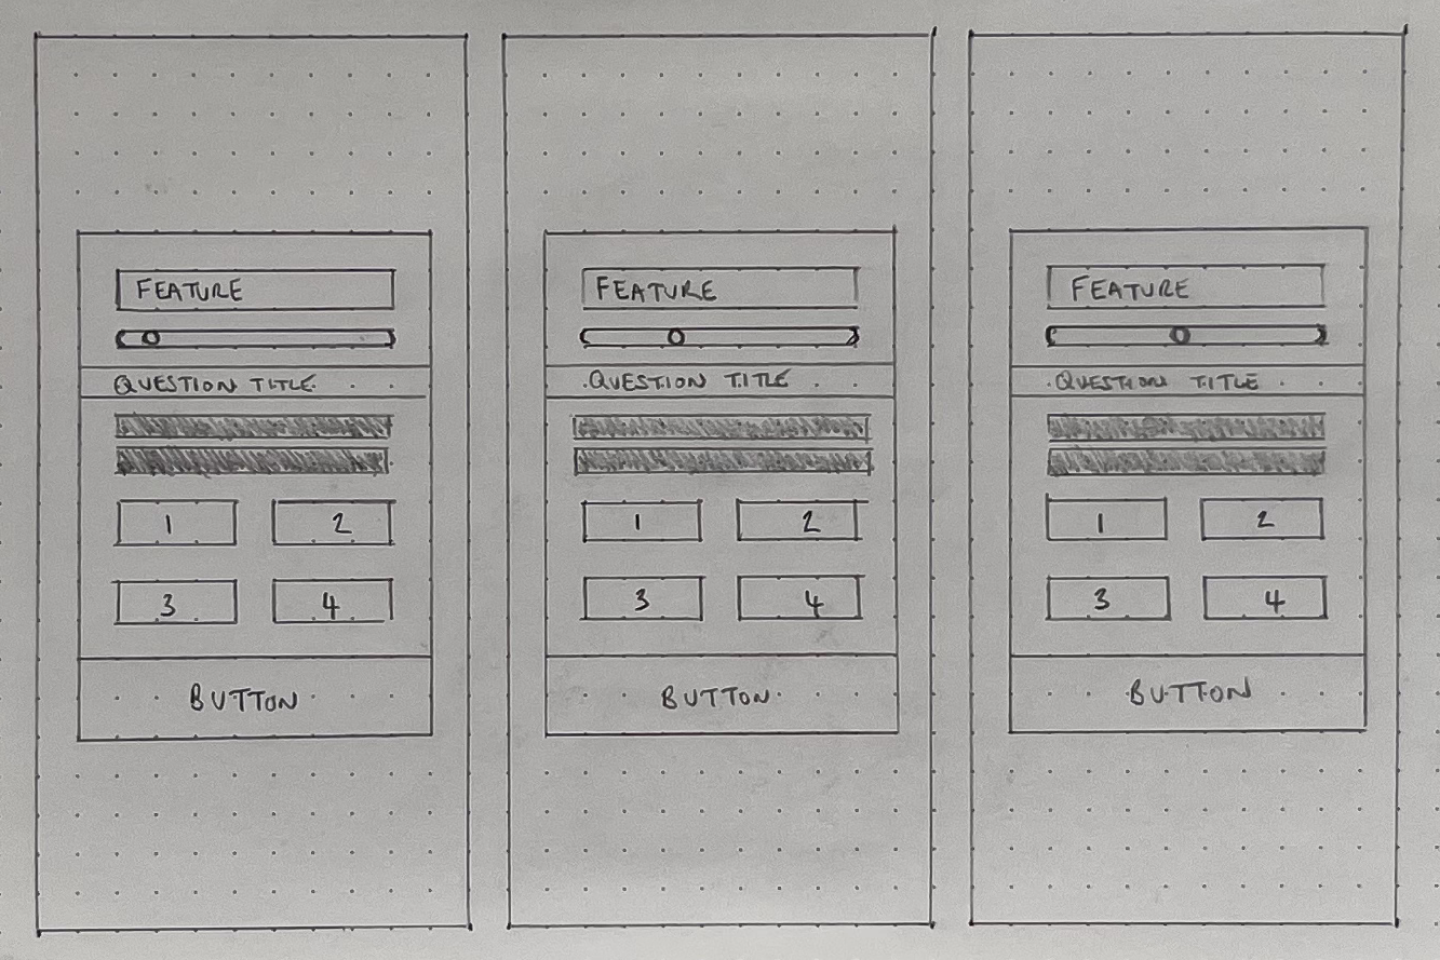 FEATURE
QUESTION TITLE
1 2
3 4
BUTTON
FEATURE
QUESTION TITLE
1 2
3 4
BUTTON
FEATURE
QUESTION TITLE
1 2
3 4
BUTTON